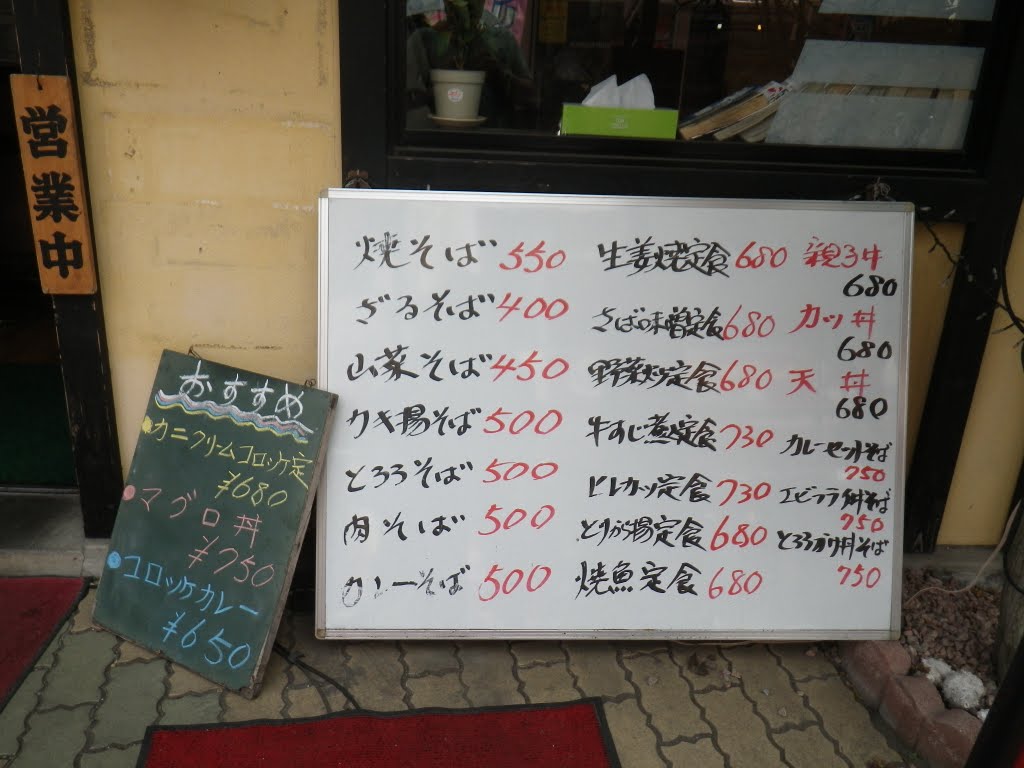 営業中
おすすめ
カニクリムコロッケ定
¥680
マグロ丼
¥750
コロッケカレー
¥650
焼そば 550
ざるそば 400
山菜そば 450
カキ揚そば 500
とろろそば 500
肉そば 500
カレーそば 500
生姜焼定食 680
さばの味噌定食 680
野菜炒定食 680
牛すじ煮定食 730
ヒレカツ定食 730
とりから揚定食 680
焼魚定食 680
親子丼
680
カツ丼
680
天丼
680
カレーセットそば
750
エビフライ丼そば
750
とろろ丼そば
750